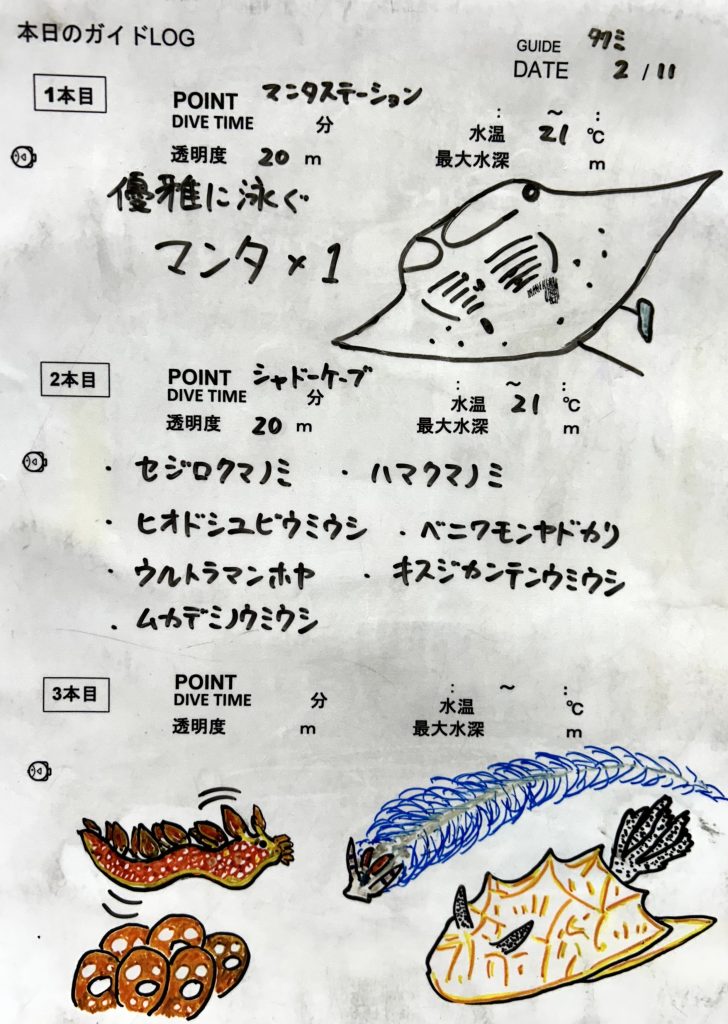 本日のガイドLOG
GUIDE タクミ
DATE 2/11
1本目
POINT マンタステーション
DIVE TIME 分 : ~ :
水温 21 ℃
透明度 20 m 最大水深 m
優雅に泳ぐ
マンタ×1
2本目
POINT シャドーケーブ
DIVE TIME 分 : ~ :
水温 21 ℃
透明度 20 m 最大水深 m
・セジロクマノミ ・ハマクマノミ
・ヒオドシユビウミウシ ・ベニワモンヤドカリ
・ウルトラマンホヤ ・キスジカンテンウミウシ
・ムカデミノウミウシ
3本目
POINT
DIVE TIME 分 : ~ :
水温 ℃
透明度 m 最大水深 m